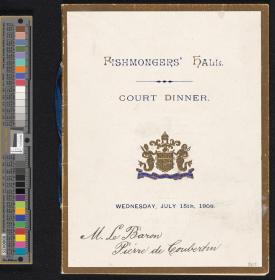 FISHMONGERS' HALL.
COURT DINNER.
WEDNESDAY, JULY 15th, 1908.
M. Le Baron
Pierre de Coubertin